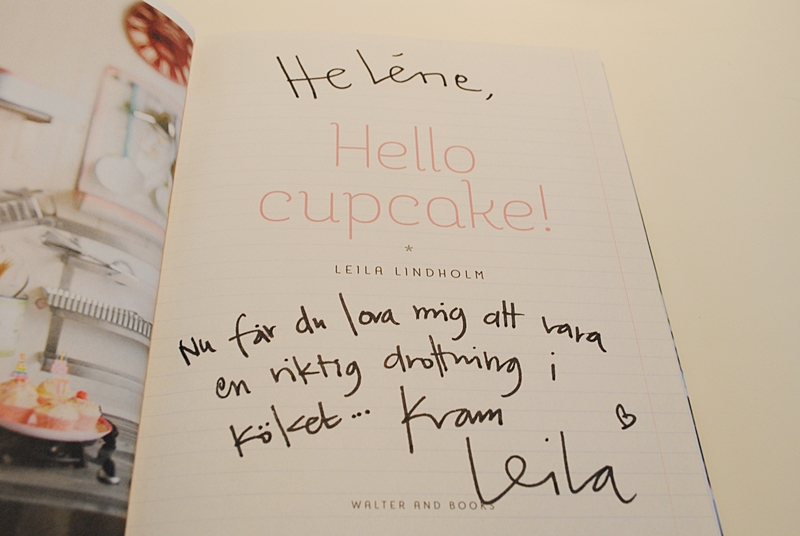 Heléne,
Hello
cupcake!
*
LEILA LINDHOLM
Nu får du lova mig att vara
en riktig drottning i
köket... Kram
Leila
WALTER AND BOOKS